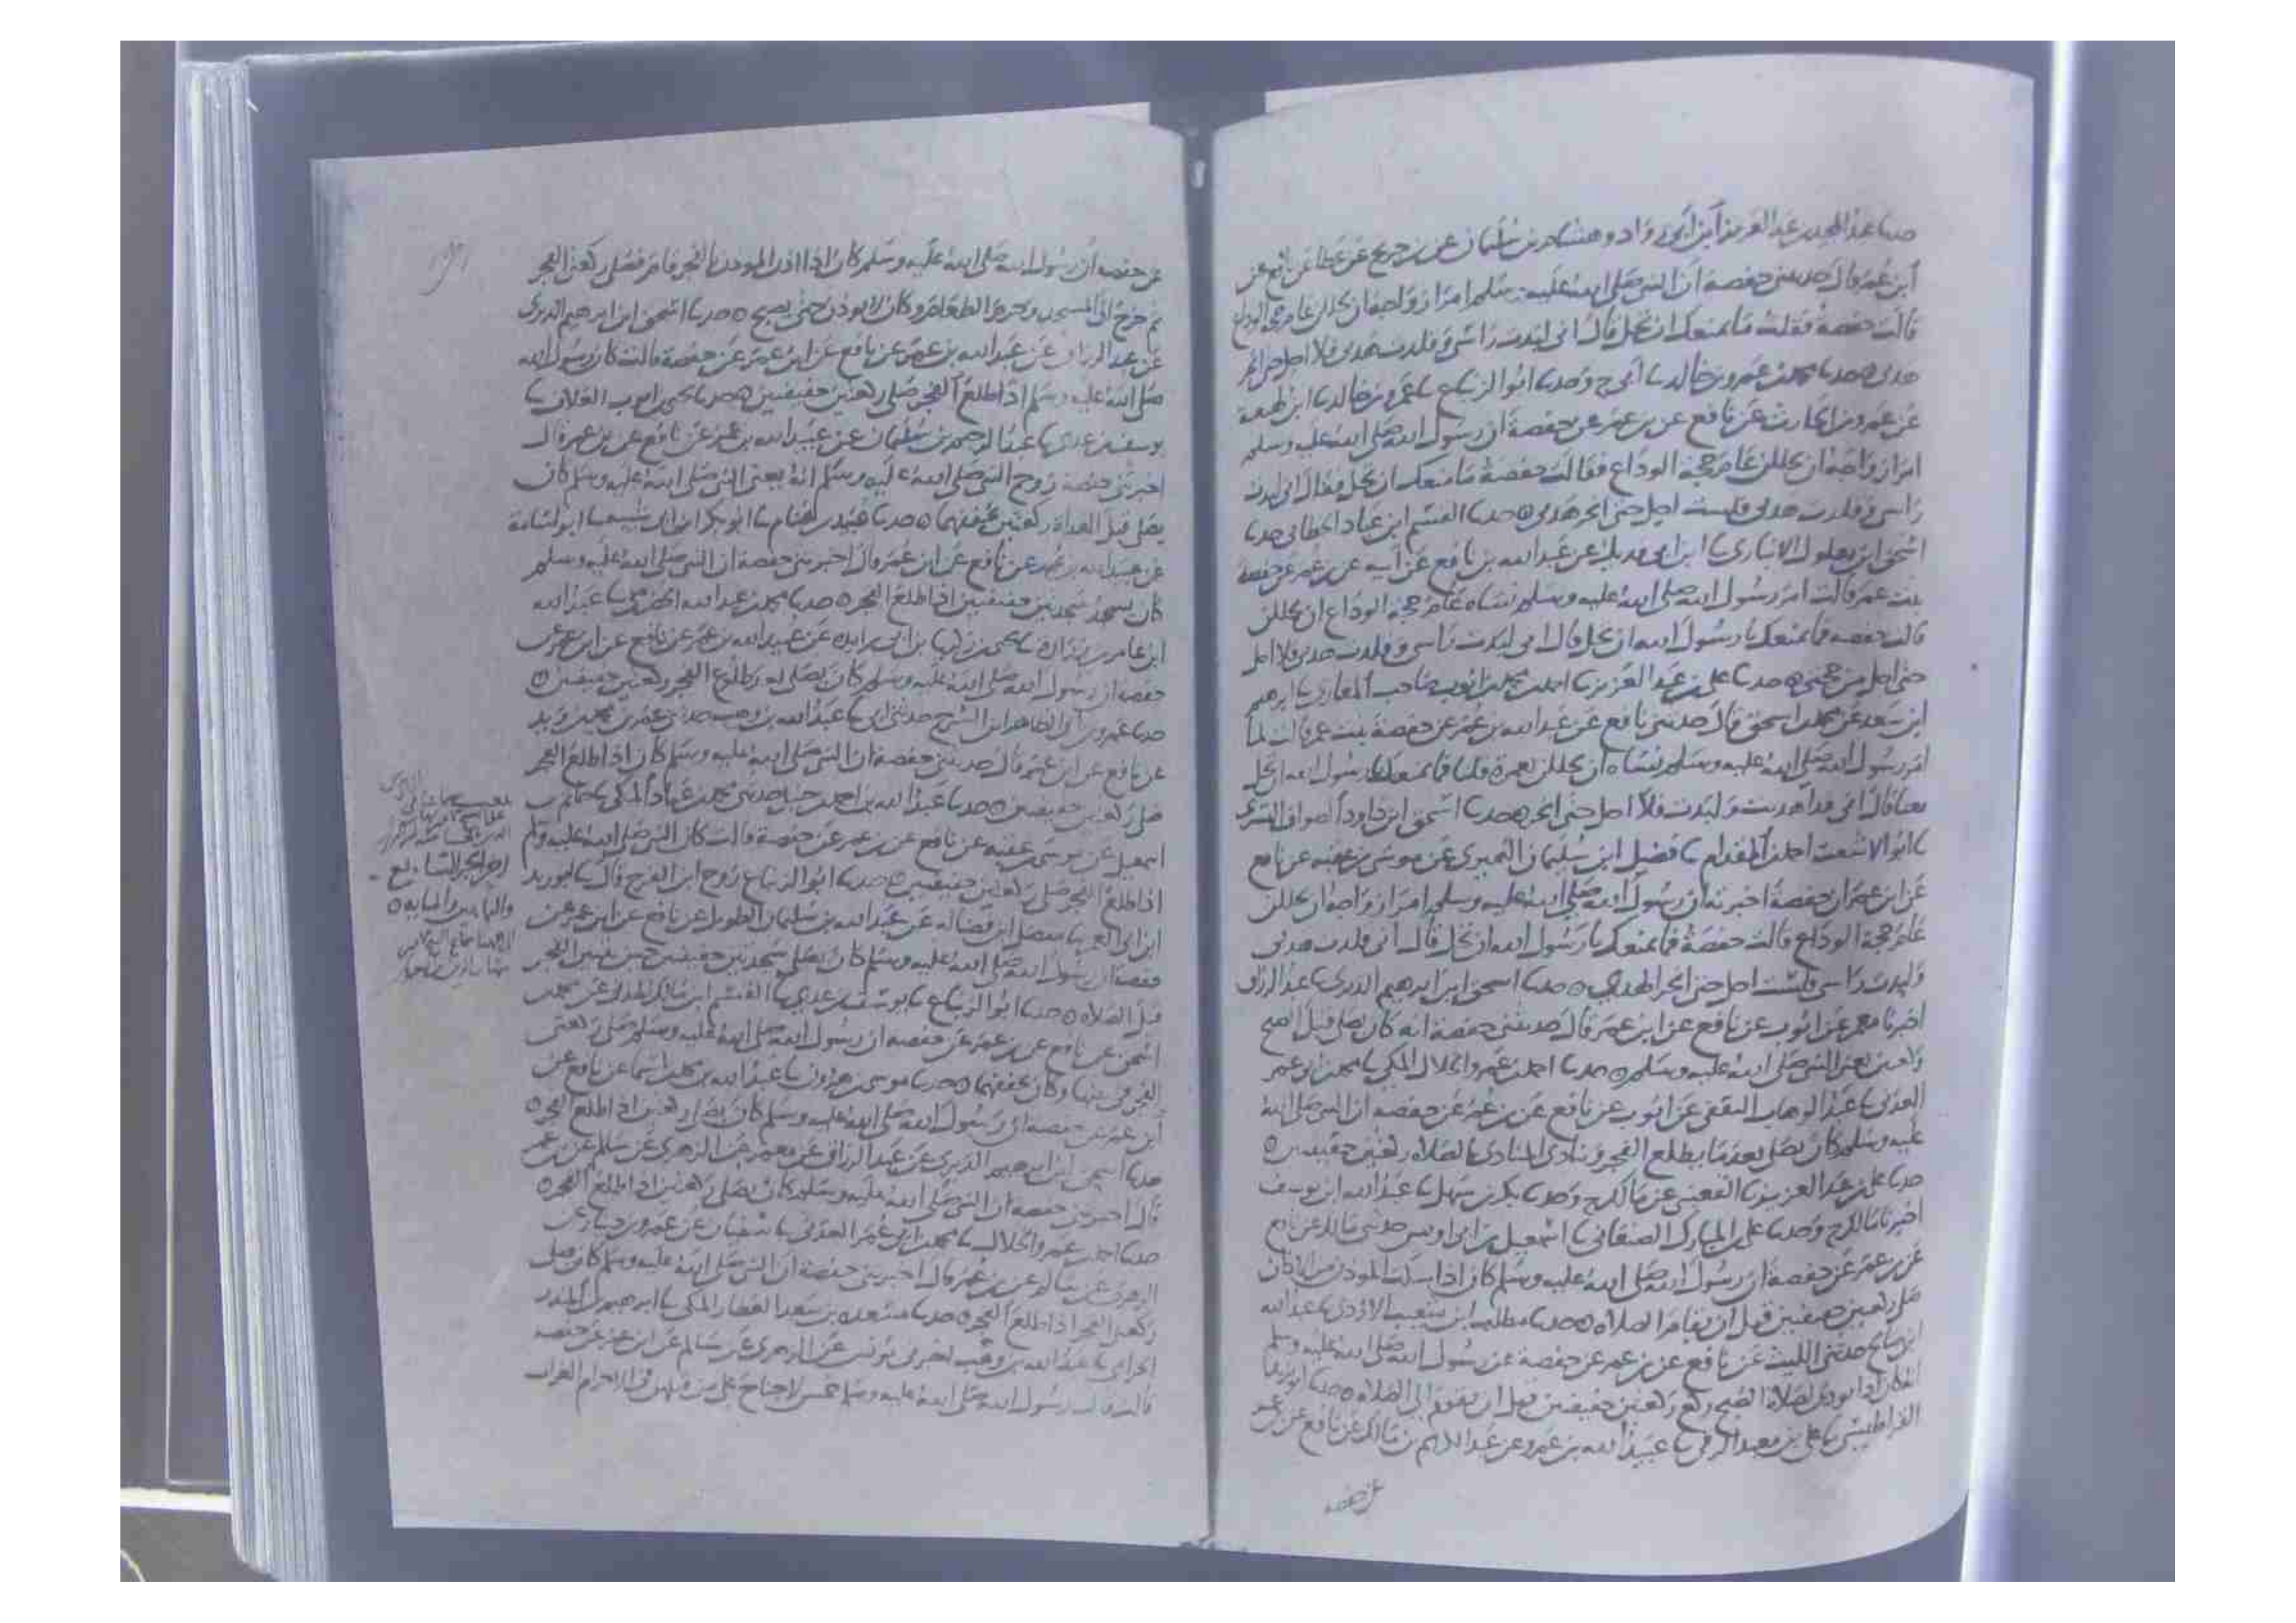 حدثنا عبد المجيد بن عبد العزيز ابن ابي رواد وهشام بن سليمان عن بن جريج عن نافع عن
ابن عمر قال حدثتني حفصة ان النبي صلى الله عليه وسلم امر ازواجه ان يحللن عام حجة الوداع
قالت حفصة فقلت ما يمنعك ان تحل قال اني لبدت راسي وقلدت هديي فلا احل حتى انحر
هديي ه حدثنا محمد بن عمرو بن خالد نا ابي ح وحدثنا ابو الزنباع نا عمرو بن خالد نا ابن لهيعة
عن عمرو بن الحارث عن نافع عن بن عمر عن حفصة ان رسول الله صلى الله عليه وسلم
امر ازواجه ان يحللن عام حجة الوداع فقالت حفصة ما منعك ان تحل فقال اني لبدت
راسي وقلدت هديي فلست احل حتى انحر هديي ه حدثنا القسم ابن عباد الخطابي حدثنا
اسحق ابن بهلول الانباري نا ابن ابي فديك عن عبد الله بن نافع عن ابيه عن بن عمر عن حفصة
بنت عمر قالت امر رسول الله صلى الله عليه وسلم نساه عام حجة الوداع ان يحللن
قالت حفصه فما يمنعك يا رسول الله ان تحل قال اني لبدت راسي وقلدت هديي فلا احل
حتى احل من حجتي ه حدثنا علي بن عبد العزيز نا احمد بن محمد بن ايوب صاحب المغازي نا ابرهيم
ابن سعد عن محمد بن اسحق قال حدثني نافع عن عبد الله بن عمر عن حفصة بنت عمر قالت لما
امر رسول الله صلى الله عليه وسلم نساه ان يحللن بعمرة قلنا فما يمنعك يا رسول الله ان تحل
معنا قال اني قد اهديت ولبدت فلا احل حتى انحر ه حدثنا اسحق ابن داود الصواف التستري
نا ابو الاشعث احمد بن المقدام نا فضيل ابن سليمان النميري عن موسى بن عقبه عن نافع
عن ابن عمر ان حفصة اخبرته ان رسول الله صلى الله عليه وسلم امر ازواجه ان يحللن
عام حجة الوداع قالت حفصة فما يمنعك يا رسول الله ان تحل قال اني قلدت هديي
ولبدت راسي فلست احل حتى انحر الهدي ه حدثنا اسحق ابن ابرهيم الدبري نا عبد الرزاق
اخبرنا معمر عن ايوب عن نافع عن ابن عمر قال حدثتني حفصة انه كان يصلي قبل الصبح
ركعتين يعني النبي صلى الله عليه وسلم ه حدثنا احمد بن عمرو الخلال المكي نا محمد بن ابي عمر
العدني نا عبد الوهاب الثقفي عن ايوب عن نافع عن بن عمر عن حفصه ان النبي صلى الله
عليه وسلم كان يصلي بعدما يطلع الفجر وينادي المنادي بالصلاه ركعتين خفيفتين ه
حدثنا علي بن عبد العزيز نا القعنبي عن مالك ح وحدثنا بكر بن سهل نا عبد الله ابن يوسف
اخبرنا مالك ح وحدثنا علي بن المبارك الصنعاني نا اسمعيل بن ابي اويس حدثني مالك عن نافع
عن بن عمر عن حفصة ان رسول الله صلى الله عليه وسلم كان اذا سكت الموذن من الاذان
صلى ركعتين خفيفتين قبل ان تقام الصلاه ه حدثنا مطلب ابن شعيب الازدي نا عبد الله
ابن صالح حدثني الليث عن نافع عن بن عمر عن حفصة عن رسول الله صلى الله عليه وسلم
انه كان اذا نودي لصلاة الصبح ركع ركعتين خفيفتين قبل ان يقوم الى الصلاه ه حدثنا ابو يزيد
القراطيسي نا علي بن معبد الرقي نا عبيد الله بن عمرو عن عبد الكريم بن مالك عن نافع عن بن عمر
عن حفصه
عن حفصه ان رسول الله صلى الله عليه وسلم كان اذا اذن الموذن بالفجر قام فصلى ركعتي الفجر
ثم خرج الى المسجد وحرم الطعام وكان لا يوذن حتى يصبح ه حدثنا اسحق ابن ابرهيم الدبري
عن عبد الرزاق عن عبد الله بن عمر عن نافع عن ابن عمر عن حفصة قالت كان رسول الله
صلى الله عليه وسلم اذا طلع الفجر صلى ركعتين خفيفتين ه حدثنا يحيى بن ايوب العلاف نا
يوسف بن عدي نا عبد الرحيم بن سليمان عن عبيد الله بن عمر عن نافع عن بن عمر قال
اخبرتني حفصة زوج النبي صلى الله عليه وسلم انه يعني النبي صلى الله عليه وسلم كان
يصلي قبل الغداة ركعتين يخففهما ه حدثنا عبيد بن غنام نا ابو بكر ابن ابي شيبه نا ابو اسامة
عن عبيد الله بن عمر عن نافع عن ابن عمر قال اخبرتني حفصه ان النبي صلى الله عليه وسلم
كان يسجد سجدتين خفيفتين اذا طلع الفجر ه حدثنا محمد بن عبد الله الحضرمي نا عبد الله
ابن عامر بن زراره نا يحيى بن زكريا بن ابي زايده عن عبيد الله بن عمر عن نافع عن ابن عمر عن
حفصه ان رسول الله صلى الله عليه وسلم كان يصلي اذا طلع الفجر ركعتين خفيفتين ه
حدثنا عمرو بن ابي الطاهر ابن السرح حدثني ابي نا عبد الله بن وهب حدثني عمر بن محمد بن زيد
عن نافع عن ابن عمر قال حدثتني حفصة ان النبي صلى الله عليه وسلم كان اذا طلع الفجر
صلى ركعتين خفيفتين ه حدثنا عبد الله بن احمد بن حنبل حدثني محمد بن عباد المكي نا حاتم بن
اسمعيل عن موسى بن عقبه عن نافع عن بن عمر عن حفصة قالت كان النبي صلى الله عليه وسلم
اذا طلع الفجر صلى ركعتين خفيفتين ه حدثنا ابو الزنباع روح ابن الفرج قال نا ابو زيد
ابن ابي الغمر نا مفضل ابن فضاله عن عبد الله بن سليمان الطويل عن نافع عن ابن عمر عن
حفصة ان رسول الله صلى الله عليه وسلم كان يصلي سجدتين خفيفتين حين يتبين الفجر
قبل الصلاه ه حدثنا ابو الزنباع نا يوسف بن عدي نا القسم ابن مالك المزني عن محمد بن
اسحق عن نافع عن بن عمر عن حفصه ان رسول الله صلى الله عليه وسلم صلى ركعتي
الفجر في بيتها وكان يخففهما ه حدثنا موسى بن هرون نا عبد الله بن محمد بن اسما عن نافع عن
ابن عمر عن حفصة ان رسول الله صلى الله عليه وسلم كان يصلي ركعتين اذا طلع الفجر ه
حدثنا اسحق ابن ابرهيم الدبري عن عبد الرزاق عن معمر عن الزهري عن سالم عن بن عمر
قال اخبرتني حفصه ان النبي صلى الله عليه وسلم كان يصلي ركعتين اذا طلع الفجر ه
حدثنا احمد بن عمرو الخلال نا محمد بن ابي عمر العدني نا سفيان عن عمرو بن دينار عن
الزهري عن سالم عن بن عمر قال اخبرتني حفصة ان النبي صلى الله عليه وسلم كان يصلي
ركعتي الفجر اذا طلع الفجر ه حدثنا مسعده بن سعد العطار المكي نا ابرهيم بن المنذر
الحزامي نا عبد الله بن وهب اخبرني يونس عن الزهري عن سالم عن ابن عمر عن حفصه
قالت قال رسول الله صلى الله عليه وسلم خمس لا جناح على من قتلهن في الاحرام الغراب